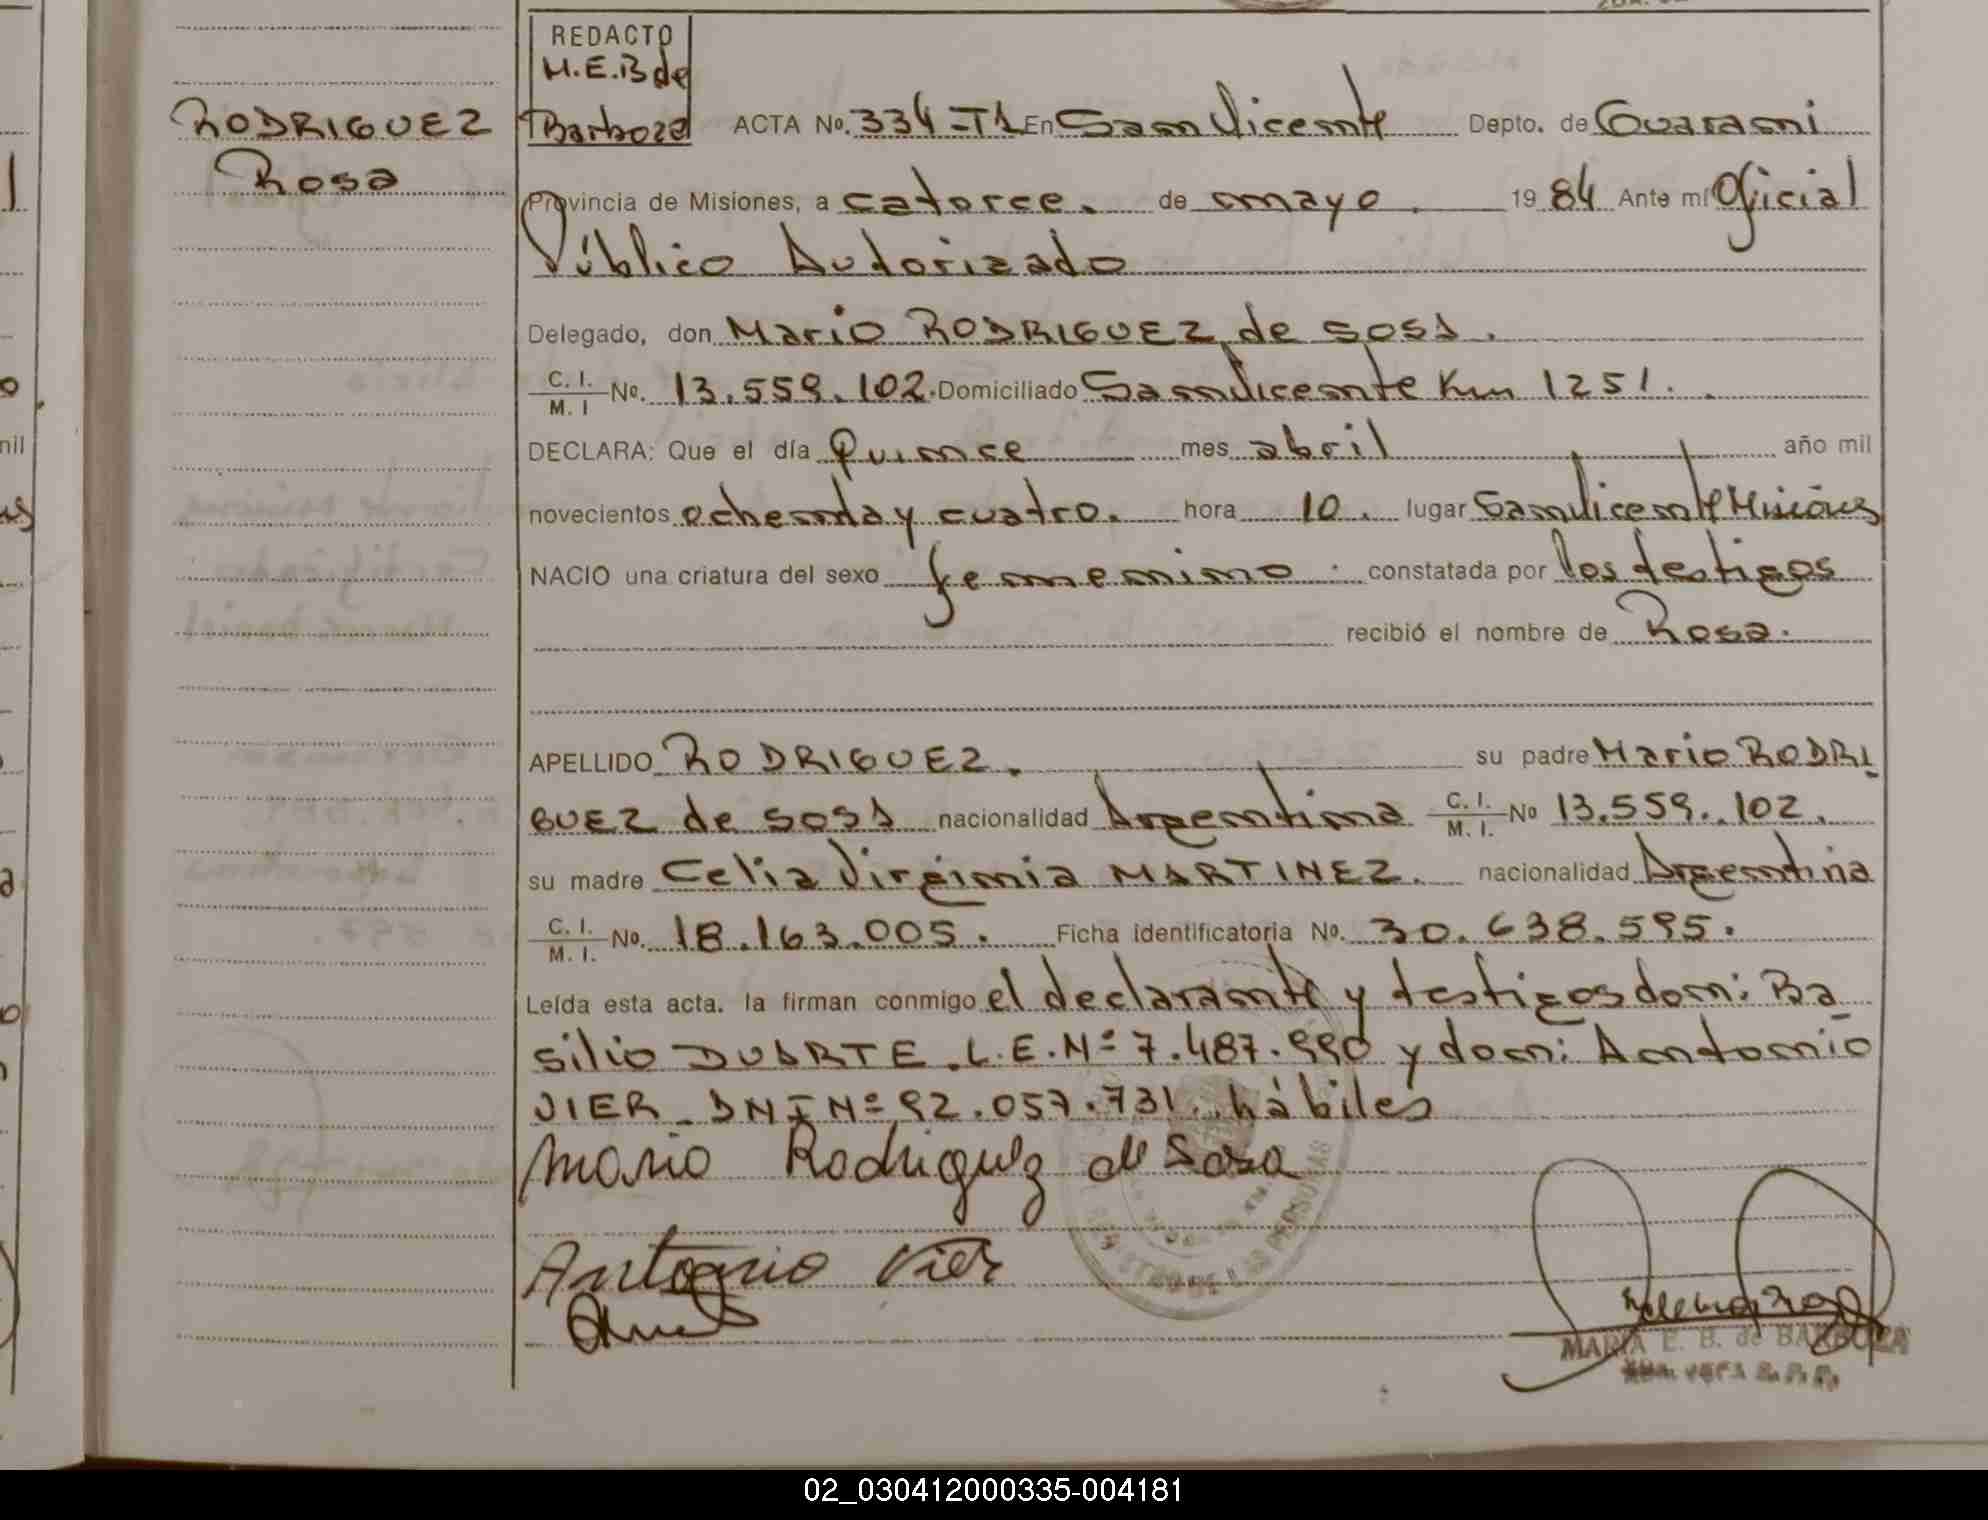 REDACTO
M.E.B de
Barboza
RODRIGUEZ
Rosa
ACTA No. 334-T1 En San Vicente Depto. de Guarani
Provincia de Misiones, a catorce. de mayo. 19 84 Ante mí Oficial
Público Autorizado
Delegado, don Mario RODRIGUEZ de SOSA.
C. I. / M. I No. 13.559.102. Domiciliado San Vicente Km 1251.
DECLARA: Que el día Quince mes abril año mil
novecientos ochenta y cuatro. hora 10. lugar San Vicente Misiones
NACIO una criatura del sexo femenino. constatada por los testigos
recibió el nombre de Rosa.
APELLIDO RODRIGUEZ. su padre Mario RODRI
GUEZ de SOSA nacionalidad Argentina C. I. / M. I. No 13.559.102.
su madre Celia Virginia MARTINEZ. nacionalidad Argentina
C. I. / M. I. No. 18.163.005. Ficha identificatoria No. 30.638.595.
Leída esta acta. la firman conmigo el declarante y testigos don: Ba
silio DUARTE. L.E.Nº 7.487.990 y don: Antonio
VIER_DNI Nº 92.057.731. hábiles
Mario Rodriguez de Sosa
Antonio Vier
MARIA E. B. de BARBOZA
02_030412000335-004181